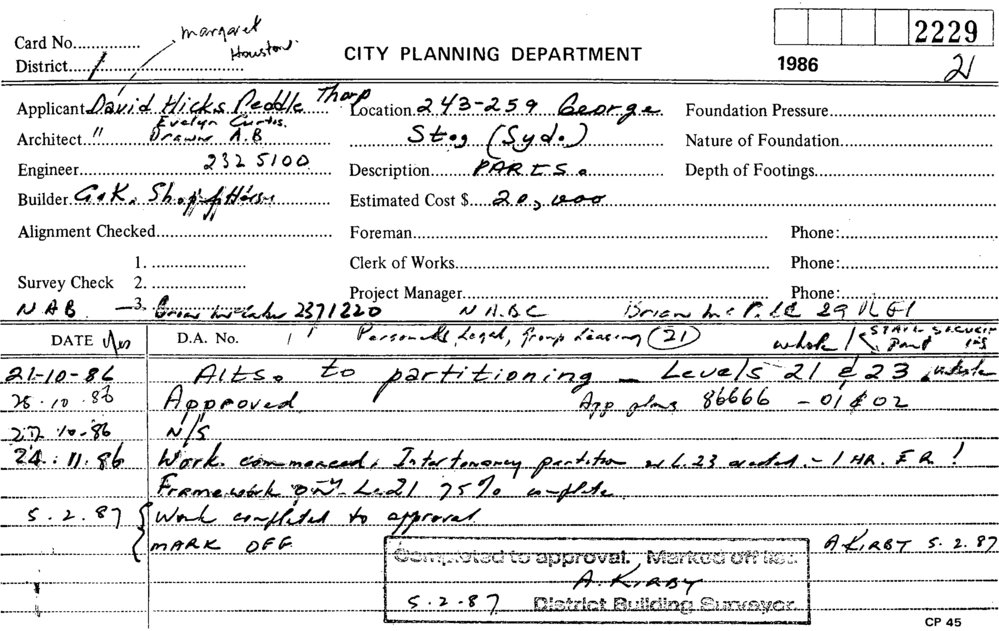 margaret
Houston
2229
Card No...............
CITY PLANNING DEPARTMENT
1986
21
District.....1
Applicant David Hicks Peddle Thorp Location 243-259 George Foundation Pressure
Evelyn Curtis.
Architect " Drawn A.B Steg (Syd.) Nature of Foundation
Engineer 232 5100 Description PARTS. Depth of Footings
Builder G&K. Shop Estimated Cost $ 20,000
Alignment Checked Foreman Phone:
1. Clerk of Works Phone:
Survey Check 2.
Project Manager Phone:
NAB - 3. 2371220 NABC Brian
DATE D.A. No. Personnel, Legal, Group Leasing (21) whole / part
21-10-86 Alts. to partitioning - Levels 21 & 23
28.10.86 Approved App plans 86666 - 01 & 02
10.86 N/S
24.11.86 Work commenced. Intertenancy partition L.23 erected - 1 HR. F.R!
Framework only L21 75% complete
5.2.87 Work completed to approval.
MARK OFF A KIRBY 5.2.87
Completed to approval. Marked off list.
A. KIRBY
5.2.87 District Building Surveyor.
CP 45